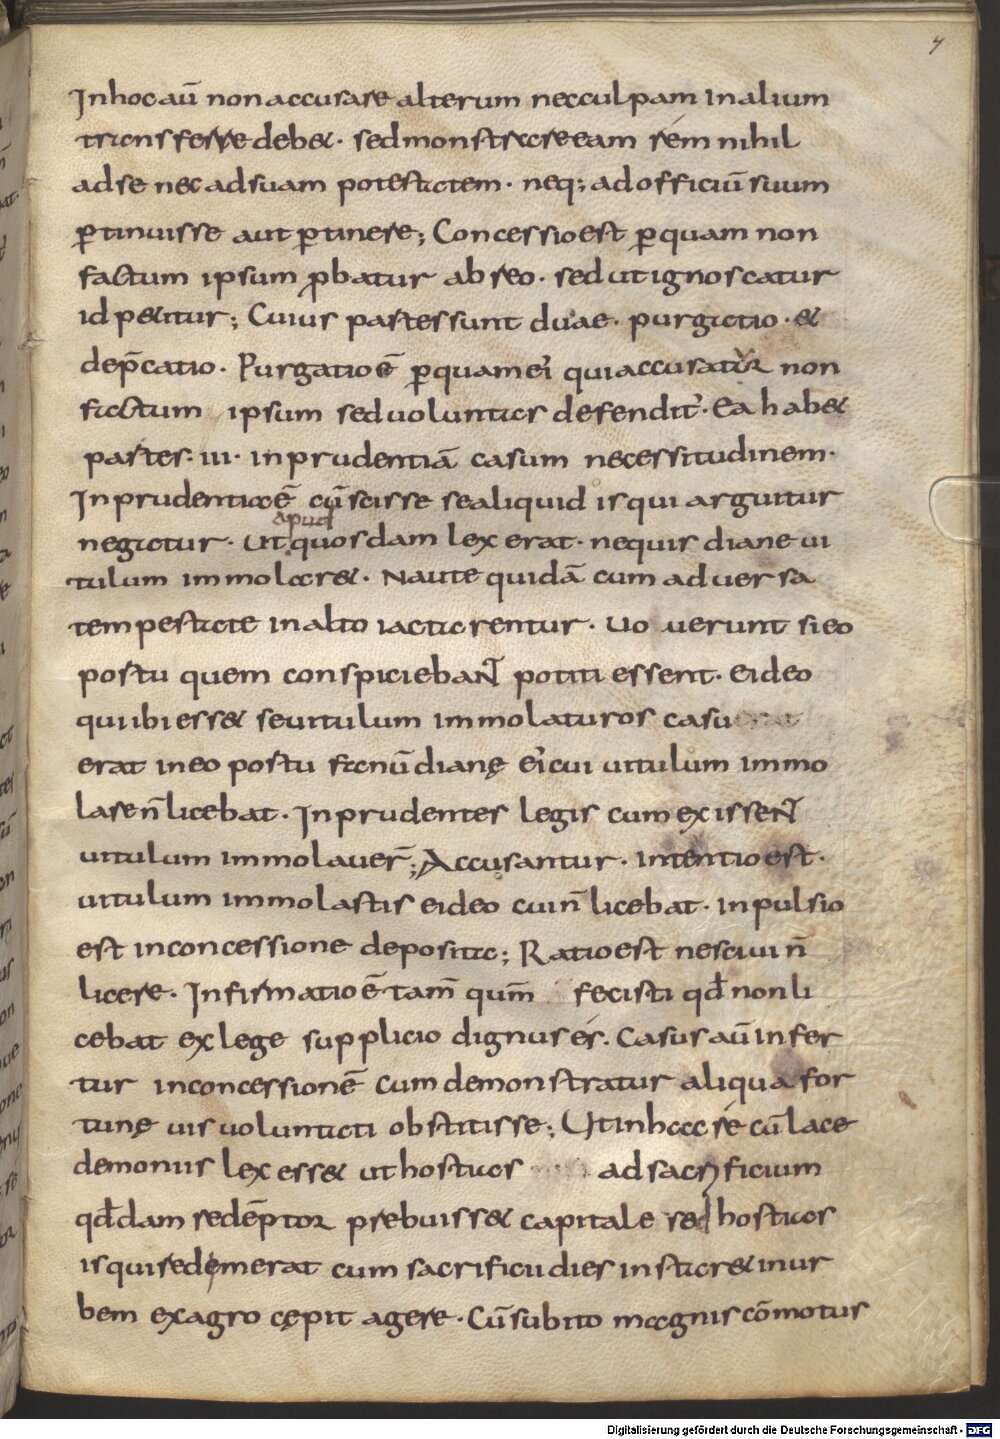 7
Inhoc aū non accusare alterum nec culpam In alium
transferre deb&. sed monstrare eam rem nihil
ad se nec ad suam potestatem. neq; ad officiū suum
ꝑtinuisse aut ꝑtinere; Concessio est ꝑ quam non
factum ipsum ꝓbatur ab reo. sed ut ignoscatur
id p&itur; Cuius partes sunt duae. purgatio. &
dep̄catio. Purgatio ē ꝑ quam eı' qui accusatur non
factum ipsum sed uoluntas defendit'. Ea hab&
partes. III. inprudentiā casum necessitudinem.
Inprudentia ē cū scisse se aliquid is qui arguitur
negatur. Ut apud quosdam lex erat. nequis diane ui
tulum immolar&. Naute quidā cum aduersa
tempestate in alto iactarentur. Uouerunt si eo
postu quem conspiciebaNT potiti essent. ei deo
qui ibi ess& se uitulum immolaturos casu
erat in eo postu fanū dianę eı' cui uitulum immo
lare n̄ licebat. Inprudentes legis cum exisseNT
uitulum immolauer̄; Accusantur. intentio est.
uitulum immolastis ei deo cui n̄ licebat. inpulsio
est in concessione deposita; Ratio est nesciui n̄
licere. Infirmatio ē tam̄ qum̄ fecisti qđ non li
cebat ex lege supplicio dignus es. Casus aū infer
tur in concessionē cum demonstratur aliqua for
tunę uis uoluntati obstitisse; Ut in hac re cū lace
demoniis lex ess& ut hostias ad sacrificium
qđdam redēptor prebuiss& capitale se hostias
is qui redemerat cum sacrificii dies instar& in ur
bem ex agro cępit agere. Cū subito magnis cōmotus
Digitalisierung gefördert durch die Deutsche Forschungsgemeinschaft - DFG